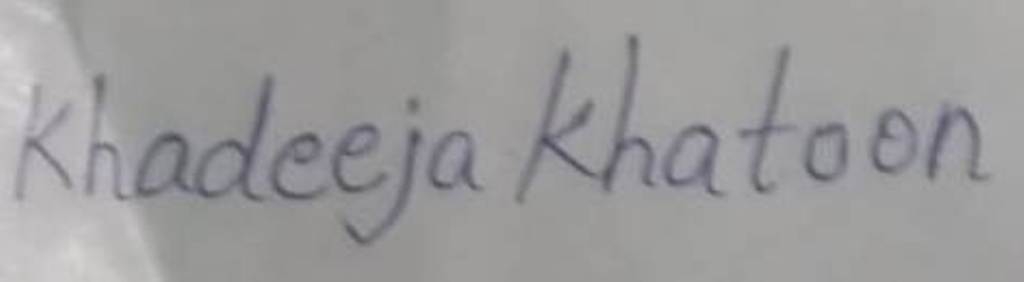 Khadeeja Khatoon